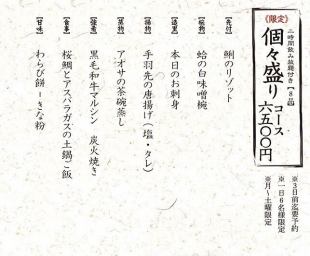 《限定》
二時間飲み放題付き【8品】
個々盛りコース
六五〇〇円
※3日前迄要予約
※一日6名様限定
※月～土曜限定
【先付】 鯛のリゾット
【椀物】 蛤の白味噌椀
【造里】 本日のお刺身
【揚物】 手羽先の唐揚げ（塩・タレ）
【蒸物】 アオサの茶碗蒸し
【強肴】 黒毛和牛マルシン 炭火焼き
【食事】 桜鯛とアスパラガスの土鍋ご飯
【甘味】 わらび餅 きな粉